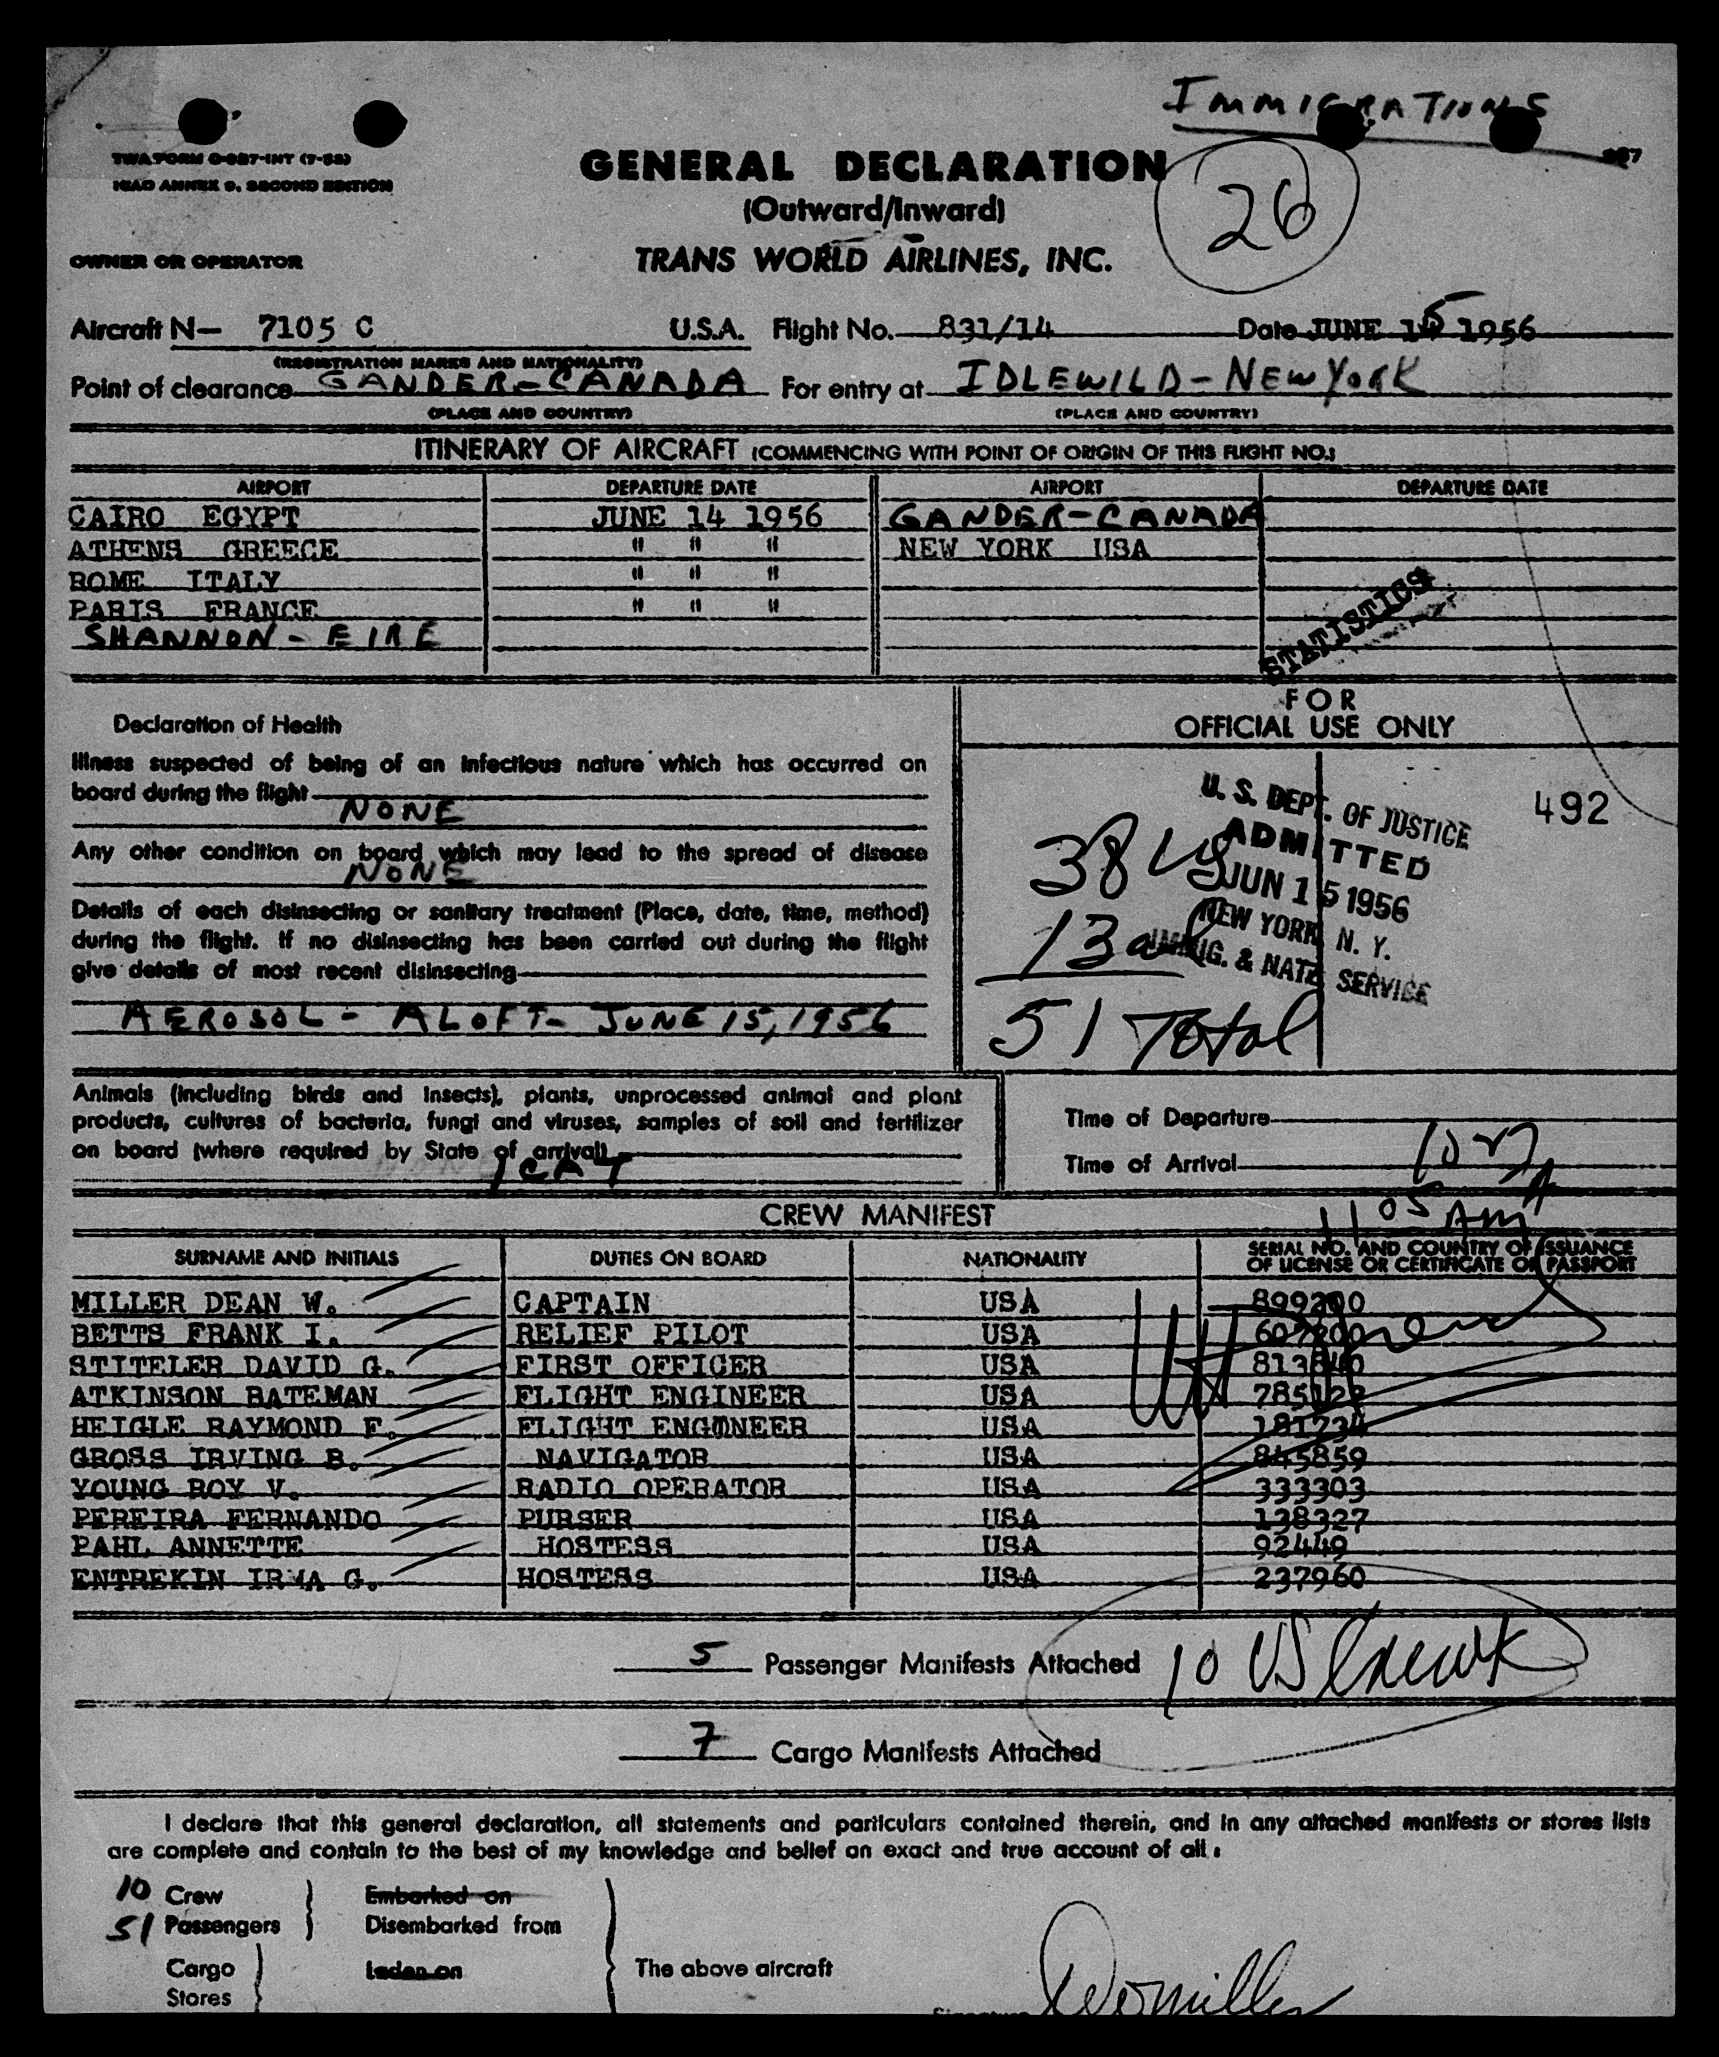 IMMIGRATIONS
TWA FORM O-927-INT (7-52)
ICAO ANNEX 9, SECOND EDITION
GENERAL DECLARATION
(Outward/Inward)
26
OWNER OR OPERATOR
TRANS WORLD AIRLINES, INC.
Aircraft N— 7105 C U.S.A. Flight No. 831/14 Date JUNE 15 1956
(REGISTRATION MARKS AND NATIONALITY)
Point of clearance GANDER-CANADA For entry at IDLEWILD-NEW YORK
(PLACE AND COUNTRY) (PLACE AND COUNTRY)
ITINERARY OF AIRCRAFT (COMMENCING WITH POINT OF ORIGIN OF THIS FLIGHT NO.)
AIRPORT DEPARTURE DATE AIRPORT DEPARTURE DATE
CAIRO EGYPT JUNE 14 1956 GANDER-CANADA
ATHENS GREECE " " " NEW YORK USA
ROME ITALY " " "
PARIS FRANCE " " "
SHANNON - EIRE
STATISTICS
FOR
OFFICIAL USE ONLY
Declaration of Health
Illness suspected of being of an infectious nature which has occurred on
board during the flight
NONE
Any other condition on board which may lead to the spread of disease
NONE
Details of each disinsecting or sanitary treatment (Place, date, time, method)
during the flight. If no disinsecting has been carried out during the flight
give details of most recent disinsecting
AEROSOL - ALOFT - JUNE 15, 1956
492
U. S. DEPT. OF JUSTICE
ADMITTED
JUN 15 1956
NEW YORK, N. Y.
IMMIG. & NATZ. SERVICE
38 US
13 al
51 Total
Animals (including birds and insects), plants, unprocessed animal and plant
products, cultures of bacteria, fungi and viruses, samples of soil and fertilizer
on board (where required by State of arrival)
1 CAT
Time of Departure
Time of Arrival
1105 AM
CREW MANIFEST
SURNAME AND INITIALS DUTIES ON BOARD NATIONALITY SERIAL NO. AND COUNTRY OF ISSUANCE
OF LICENSE OR CERTIFICATE OR PASSPORT
MILLER DEAN W. CAPTAIN USA 899200
BETTS FRANK I. RELIEF PILOT USA
STITELER DAVID G. FIRST OFFICER USA 813840
ATKINSON BATEMAN FLIGHT ENGINEER USA 785122
HEIGLE RAYMOND F. FLIGHT ENGINEER USA 181734
GROSS IRVING B. NAVIGATOR USA 845859
YOUNG ROY V. RADIO OPERATOR USA 333303
PEREIRA FERNANDO PURSER USA 138327
PAHL ANNETTE HOSTESS USA 92449
ENTREKIN IRMA G. HOSTESS USA 237960
5 Passenger Manifests Attached
10 US
7 Cargo Manifests Attached
I declare that this general declaration, all statements and particulars contained therein, and in any attached manifests or stores lists
are complete and contain to the best of my knowledge and belief an exact and true account of all:
10 Crew Embarked on
51 Passengers Disembarked from
Cargo Laden on The above aircraft
Stores
DWMiller